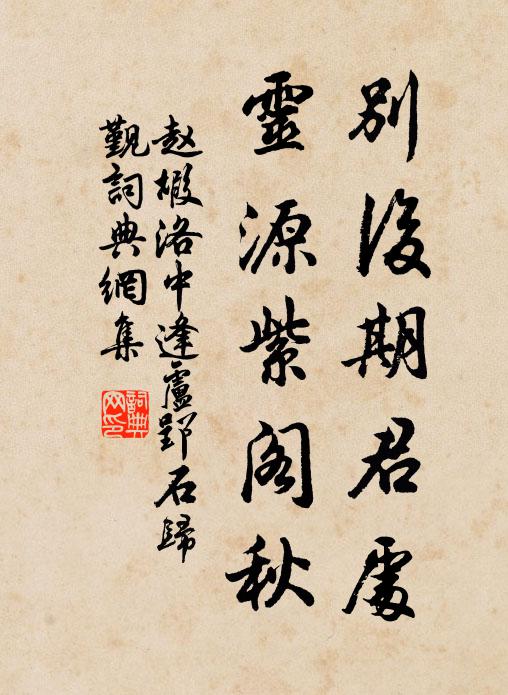 別後期君處
靈源紫閣秋
趙嘏洛中逢盧郢石歸
觀詞典網集
詞典網印